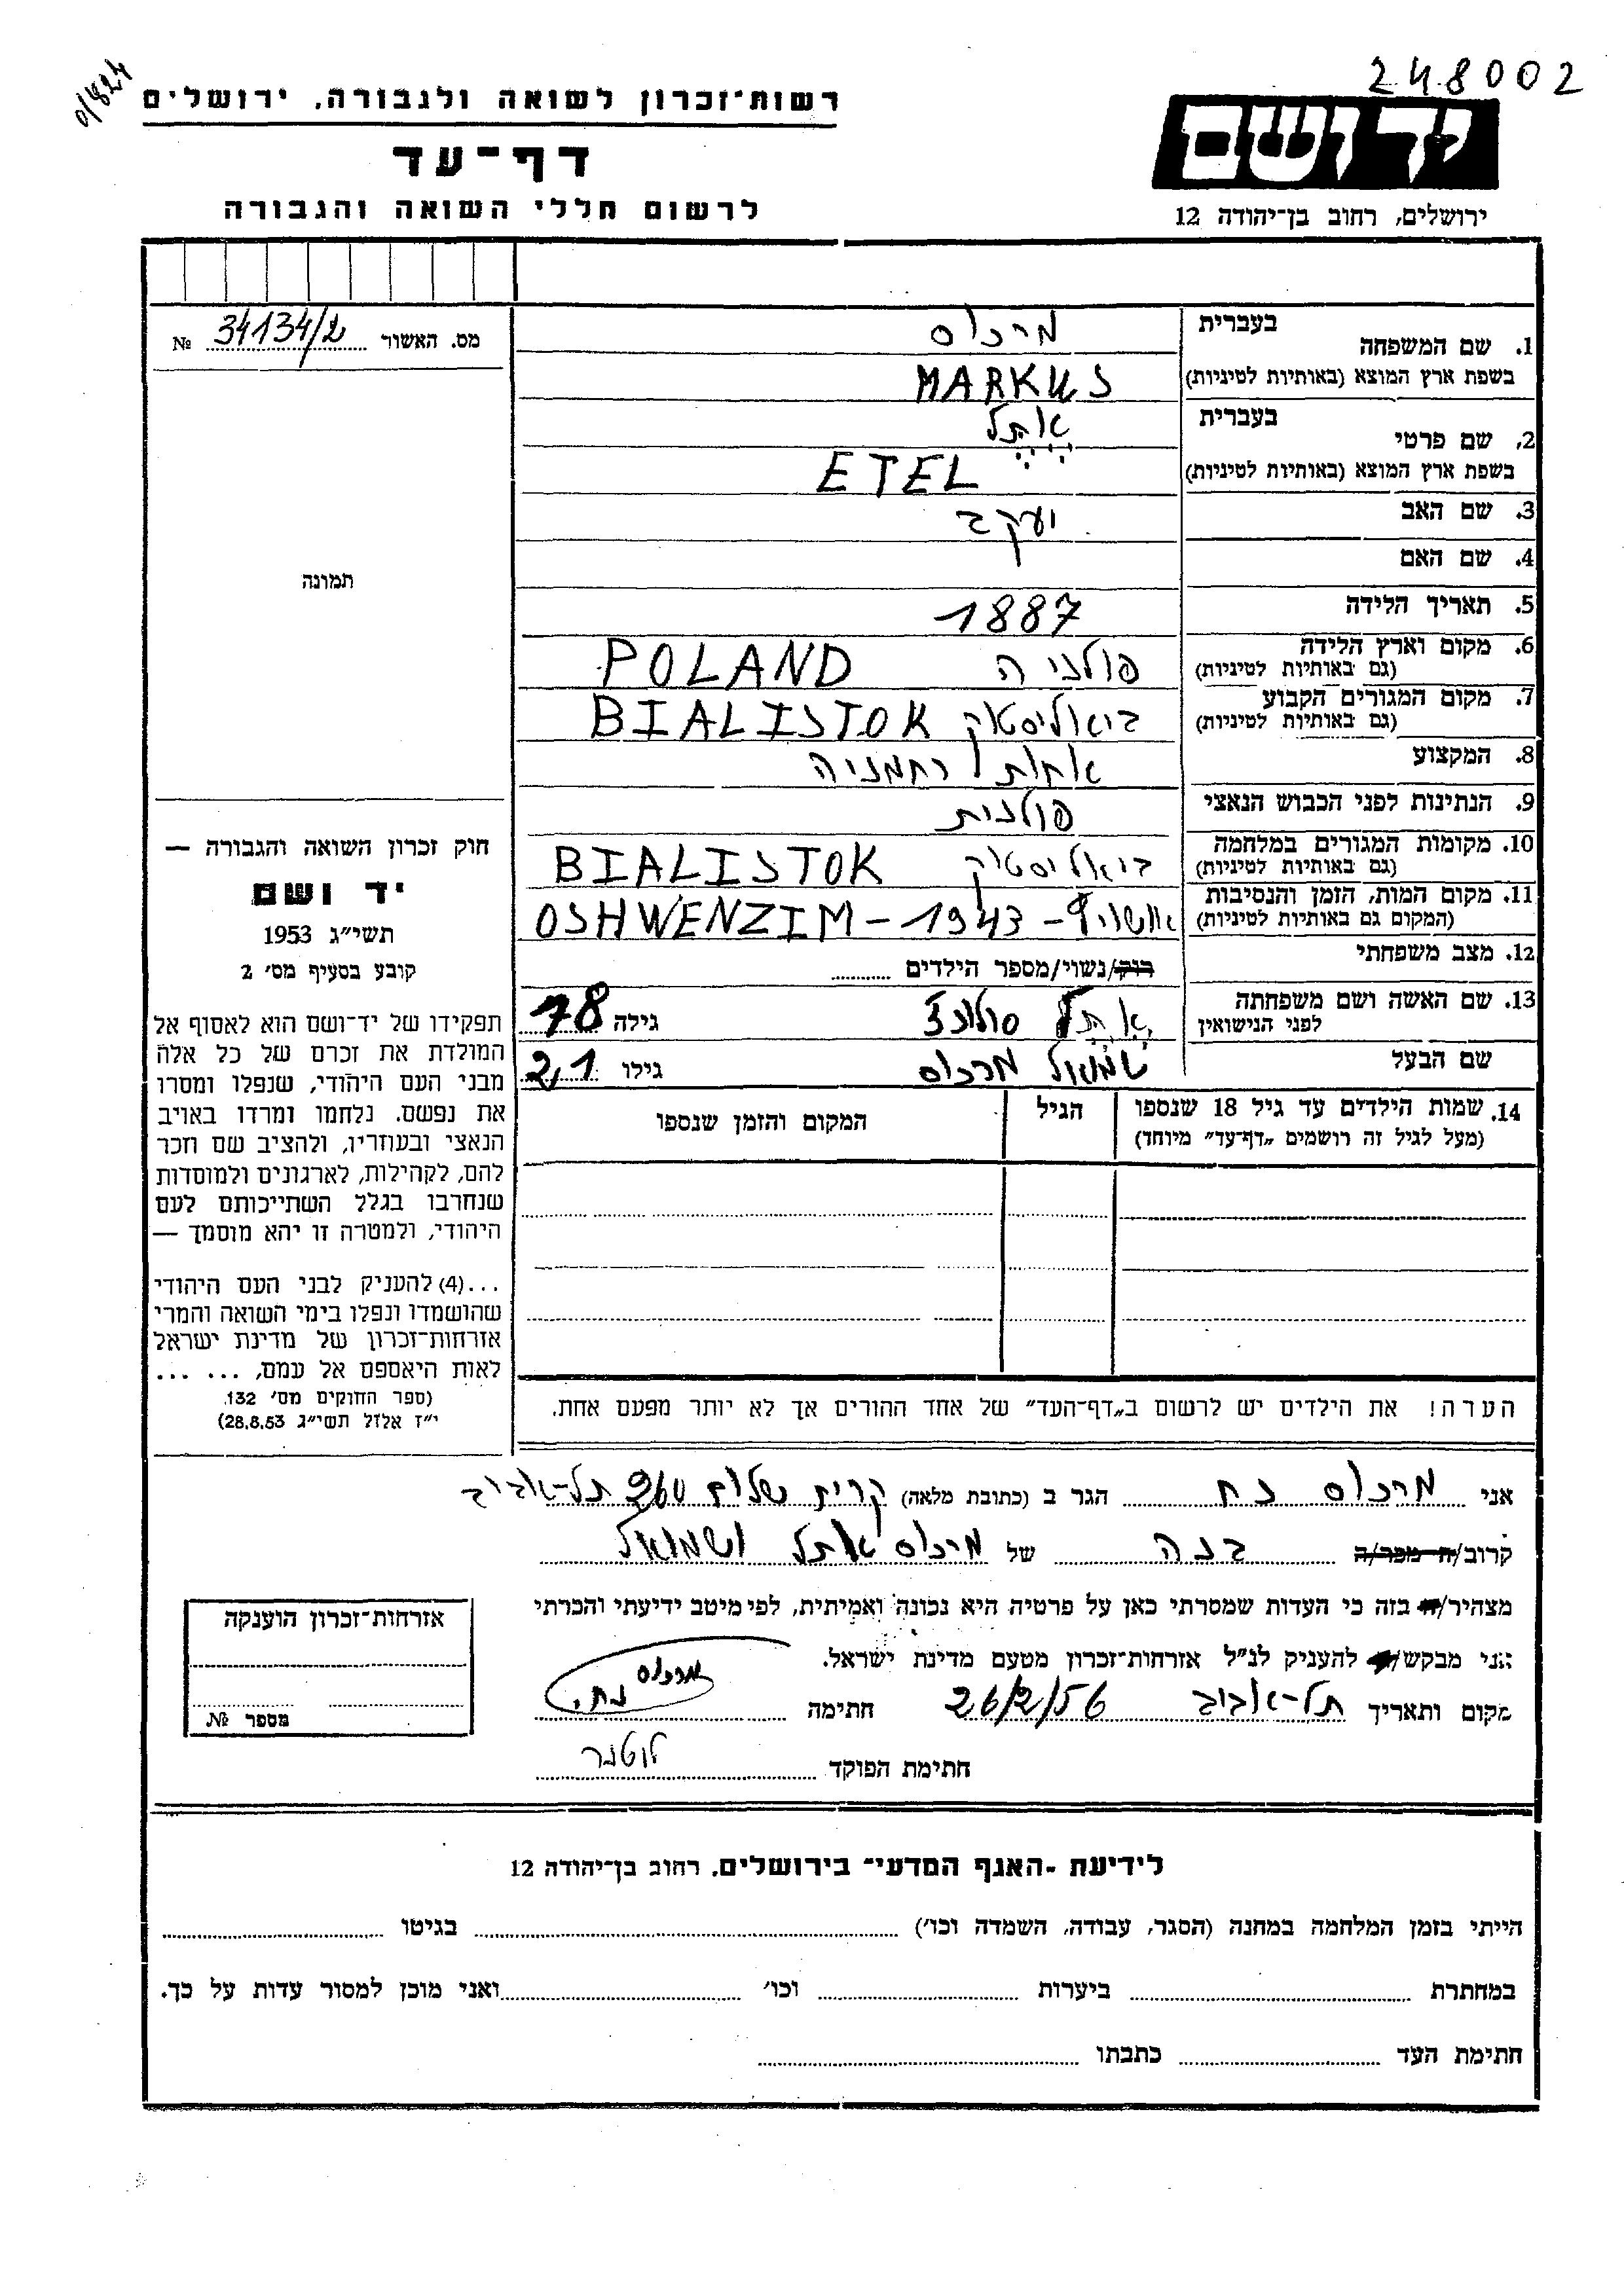 248002
0/824
רשות־זכרון לשואה ולגבורה, ירושלים
דף־עד
לרשום חללי השואה והגבורה
יד ושם
ירושלים, רחוב בן־יהודה 12
מס. האשור 34134/2 №
תמונה
חוק זכרון השואה והגבורה —
יד ושם
תשי״ג 1953
קובע בסעיף מס׳ 2
תפקידו של יד־ושם הוא לאסוף אל
המולדת את זכרם של כל אלה
מבני העם היהודי, שנפלו ומסרו
את נפשם. נלחמו ומרדו באויב
הנאצי ובעוזריו, ולהציב שם וזכר
להם, לקהילות, לארגונים ולמוסדות
שנחרבו בגלל השתייכותם לעם
היהודי, ולמטרה זו יהא מוסמך —
...(4) להעניק לבני העם היהודי
שהושמדו ונפלו בימי השואה והמרי
אזרחות־זכרון של מדינת ישראל
לאות היאספם אל עמם, ... ...
(ספר החוקים מס׳ 132.
י״ז אלול תשי״ג 28.8.53)
1. שם המשפחה בעברית מרכוס
בשפת ארץ המוצא (באותיות לטיניות) MARKUS
2. שם פרטי בעברית אֶתֶל
בשפת ארץ המוצא (באותיות לטיניות) ETEL
3. שם האב יעקב
4. שם האם
5. תאריך הלידה 1887
6. מקום וארץ הלידה פולניה POLAND
(גם באותיות לטיניות)
7. מקום המגורים הקבוע ביאליסטוק BIALISTOK
(גם באותיות לטיניות)
8. המקצוע אחות רחמניה
9. הנתינות לפני הכבוש הנאצי פולנית
10. מקומות המגורים במלחמה ביאליסטוק BIALISTOK
(גם באותיות לטיניות)
11. מקום המות, הזמן והנסיבות OSHWENZIM – 1943 –
(המקום גם באותיות לטיניות)
12. מצב משפחתי רוק/נשוי/מספר הילדים
13. שם האשה ושם משפחתה אֶתֶל גילה 18
לפני הנישואין
שם הבעל שמואל מרכוס גילו 21
14. שמות הילדים עד גיל 18 שנספו הגיל המקום והזמן שנספו
(מעל לגיל זה רושמים „דף־עד״ מיוחד)
הערה! את הילדים יש לרשום ב„דף־העד״ של אחד ההורים אך לא יותר מפעם אחת.
אני מרכוס נח הגר ב (כתובת מלאה) קרית שלום 260 תל-אביב
קרוב/ה מכר/ה בנה של מרכוס אתל ושמואל
מצהיר/ה בזה כי העדות שמסרתי כאן על פרטיה היא נכונה ואמיתית, לפי מיטב ידיעתי והכרתי
אני מבקש/ת להעניק לנ״ל אזרחות־זכרון מטעם מדינת ישראל.
מקום ותאריך תל-אביב 26/2/56 חתימה מרכוס נח
חתימת הפוקד
אזרחות־זכרון הוענקה
מספר №
לידיעת ־האגף המדעי־ בירושלים, רחוב בן־יהודה 12
הייתי בזמן המלחמה במחנה (הסגר, עבודה, השמדה וכו׳) בגיטו
במחתרת ביערות וכו׳ ואני מוכן למסור עדות על כך.
חתימת העד כתבתו